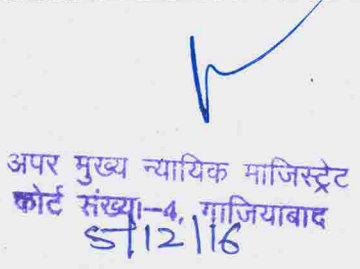 अपर मुख्य न्यायिक माजिस्ट्रेट
कोर्ट संख्या-4, गाजियाबाद
5/12/16